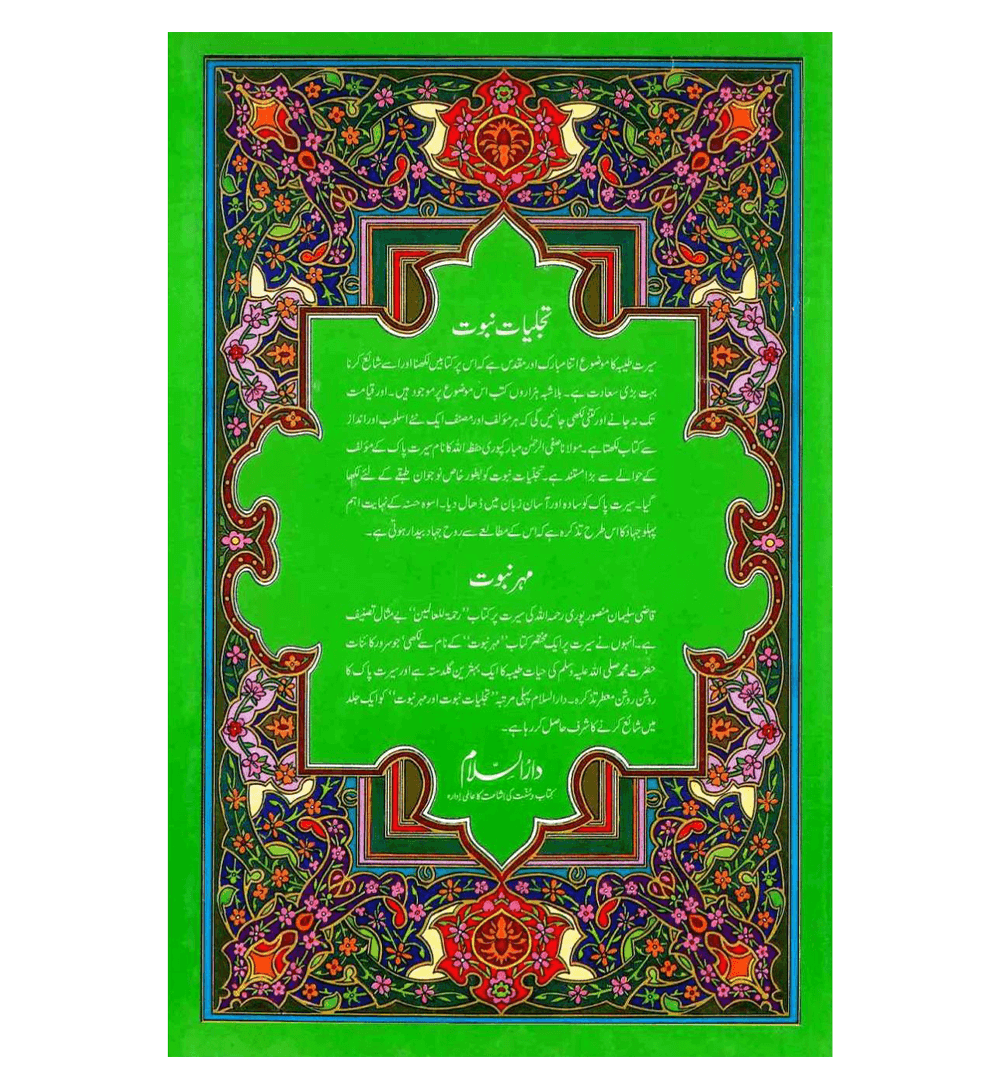 تجلیات نبوت
سیرت طیبہ کا موضوع اتنا مبارک اور مقدس ہے کہ اس پر کتابیں لکھنا اور اسے شائع کرنا
بہت بڑی سعادت ہے۔ بلاشبہ ہزاروں کتب اس موضوع پر موجود ہیں۔ اور قیامت
تک نہ جانے اور کتنی لکھی جائیں گی کہ ہر مؤلف اور مصنف ایک نئے اسلوب اور انداز
سے کتاب لکھتا ہے۔ مولانا صفی الرحمٰن مبارکپوری حفظہ اللہ کا نام سیرت پاک کے مؤلف
کے حوالے سے بڑا مستند ہے۔ تجلیات نبوت کو بطور خاص نوجوان طبقے کے لئے لکھا
گیا۔ سیرت پاک کو سادہ اور آسان زبان میں ڈھال دیا۔ اسوہ حسنہ کے نہایت اہم
پہلو جہاد کا اس طرح تذکرہ ہے کہ اس کے مطالعے سے روح جہاد بیدار ہوتی ہے۔
مہر نبوت
قاضی سلیمان منصور پوری رحمہ اللہ کی سیرت پر کتاب ”رحمۃ للعالمین“ بے مثال تصنیف
ہے۔ انہوں نے سیرت پر ایک مختصر کتاب ”مہر نبوت“ کے نام سے لکھی‘ جو سرور کائنات
حضرت محمد صلی اللہ علیہ وسلم کی حیات طیبہ کا ایک بہترین گلدستہ ہے اور سیرت پاک کا
روشن روشن معطر تذکرہ۔ دارالسلام پہلی مرتبہ ”تجلیات نبوت اور مہر نبوت“ کو ایک جلد
میں شائع کرنے کا شرف حاصل کر رہا ہے۔
دارُالسّلام
کتاب و سنت کی اشاعت کا عالمی ادارہ